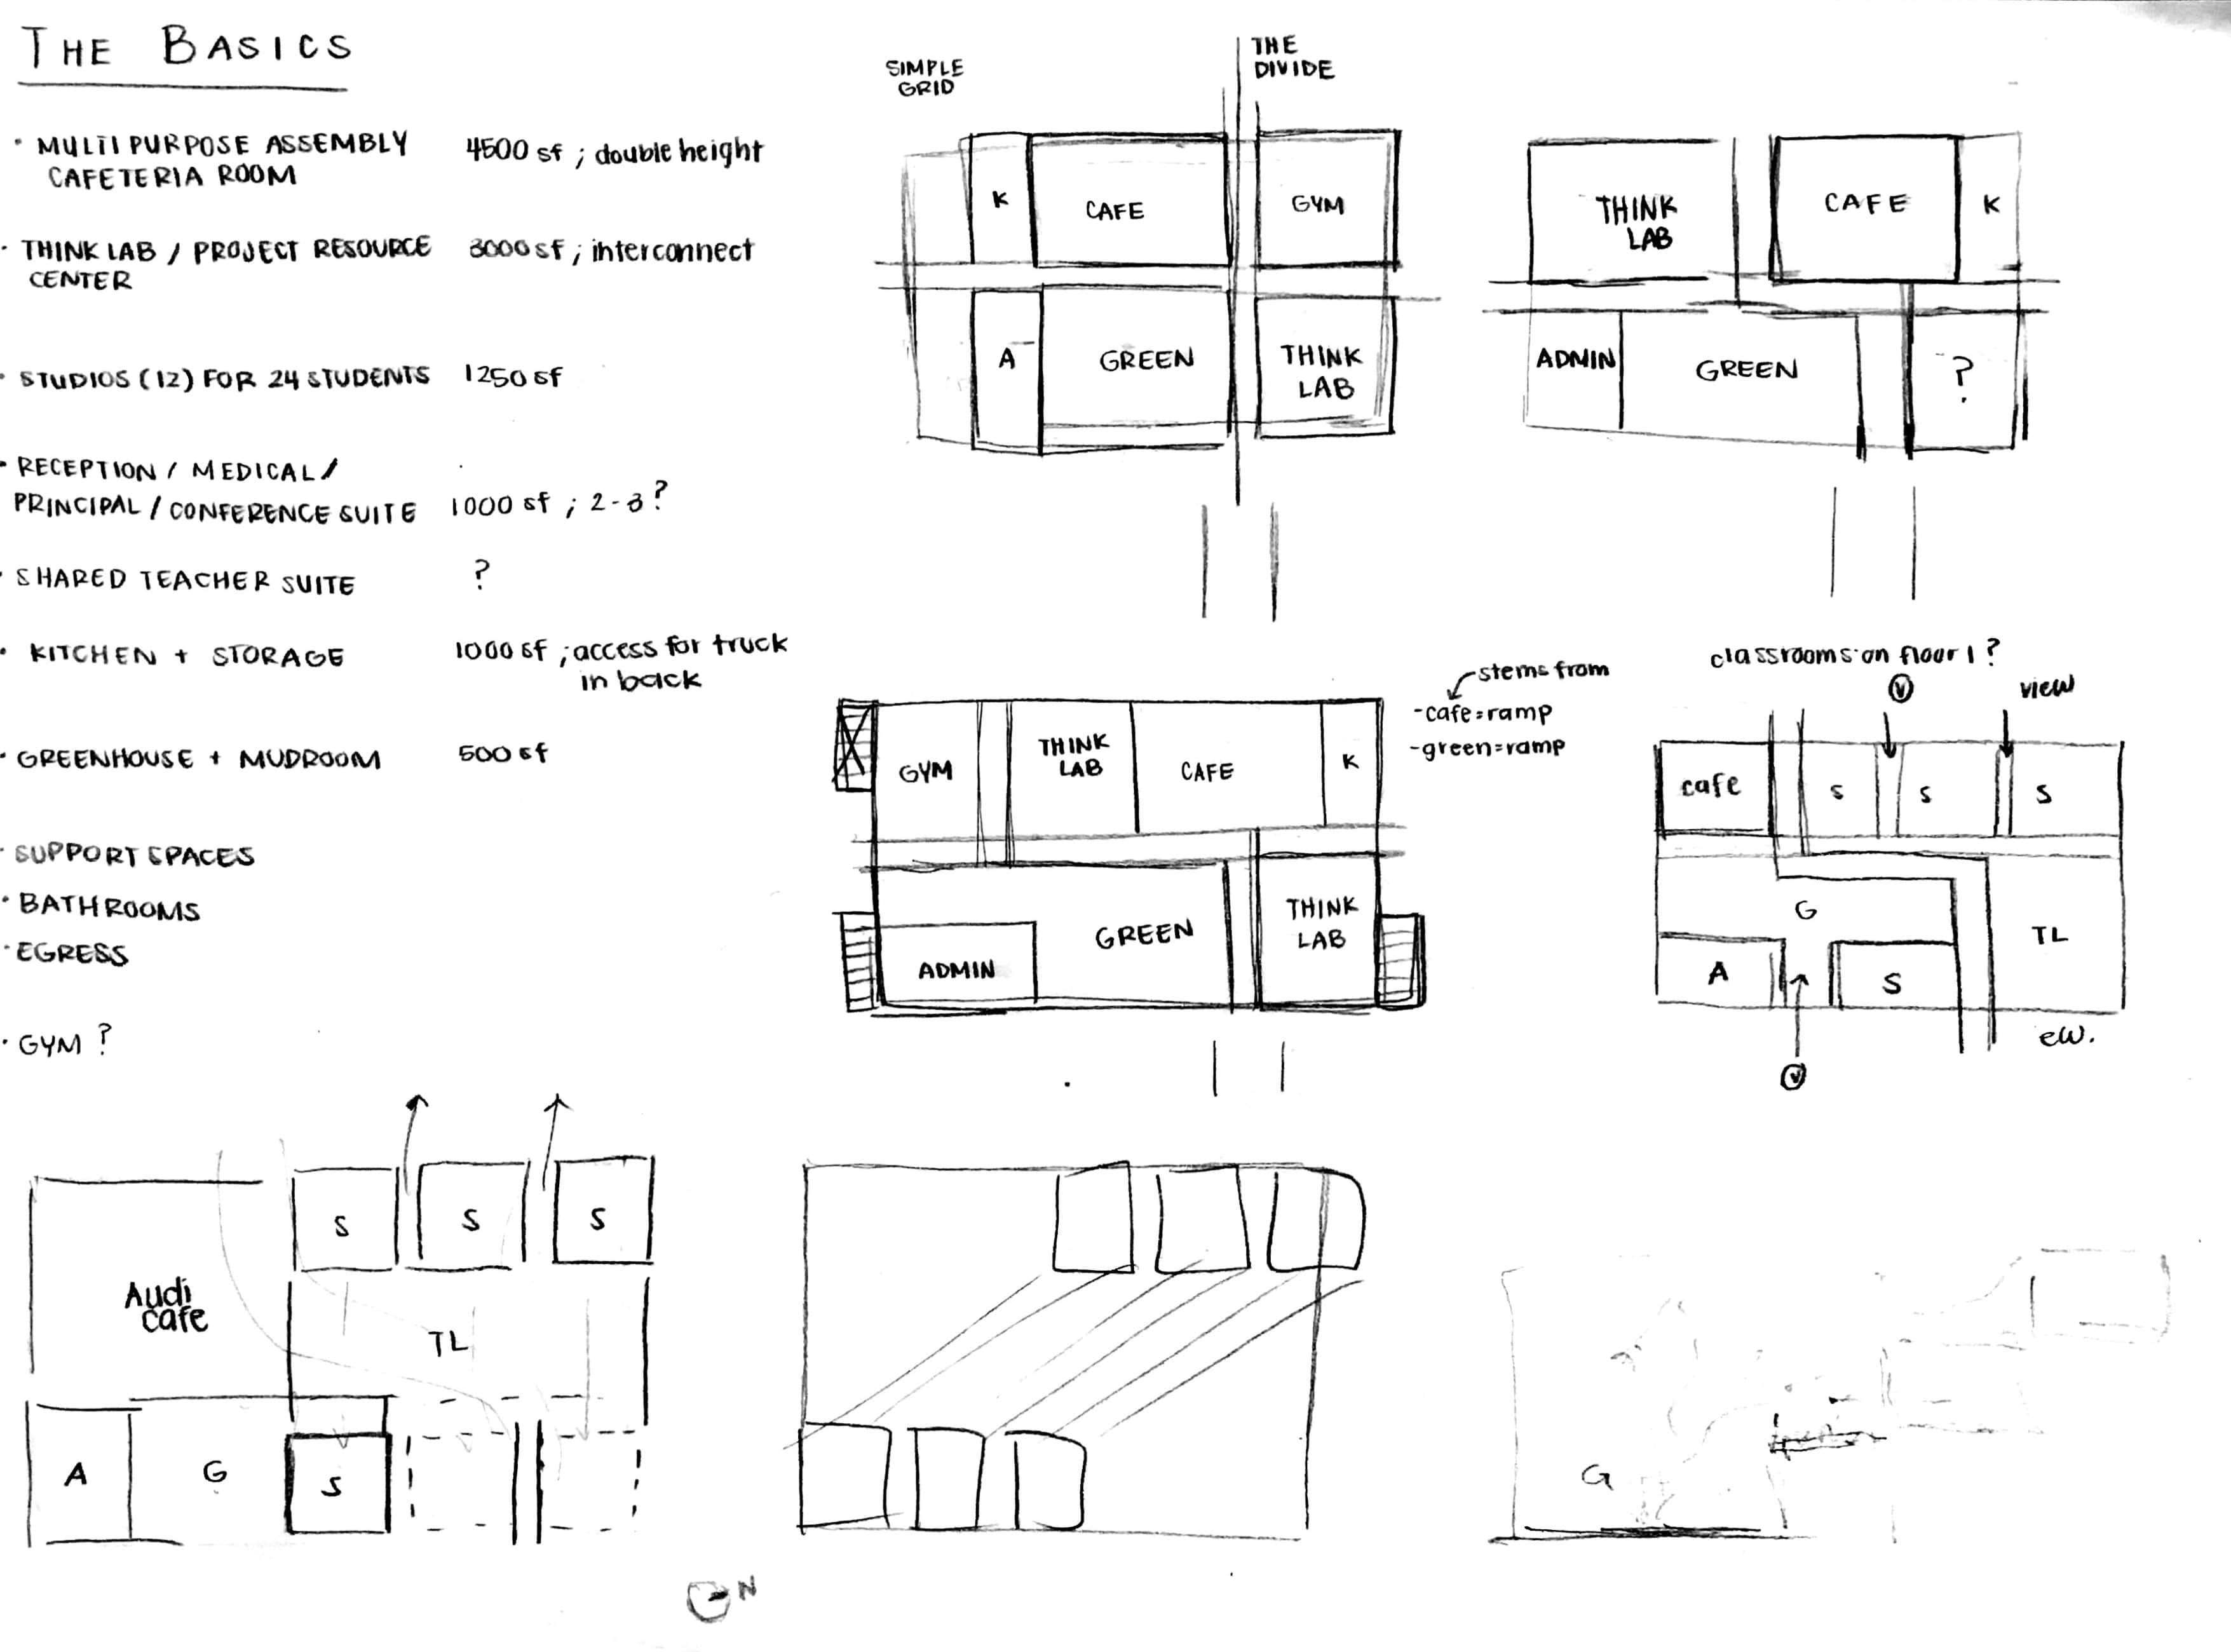 THE BASICS
· MULTIPURPOSE ASSEMBLY 4500 sf ; double height
CAFETERIA ROOM
· THINK LAB / PROJECT RESOURCE 3000 sf ; interconnect
CENTER
· STUDIOS (12) FOR 24 STUDENTS 1250 sf
· RECEPTION / MEDICAL /
PRINCIPAL / CONFERENCE SUITE 1000 sf ; 2-3?
· SHARED TEACHER SUITE ?
· KITCHEN + STORAGE 1000 sf ; access for truck
in back
· GREENHOUSE + MUDROOM 500 sf
· SUPPORT SPACES
· BATHROOMS
· EGRESS
· GYM ?
SIMPLE
GRID
THE
DIVIDE
K
CAFE
GYM
A
GREEN
THINK
LAB
THINK
LAB
CAFE
K
ADMIN
GREEN
?
GYM
THINK
LAB
CAFE
K
ADMIN
GREEN
THINK
LAB
stems from
-cafe=ramp
-green=ramp
classrooms on floor 1 ?
V
view
cafe
S
S
S
G
TL
A
S
ew.
V
S
S
S
Audi
cafe
TL
A
G
S
G
N